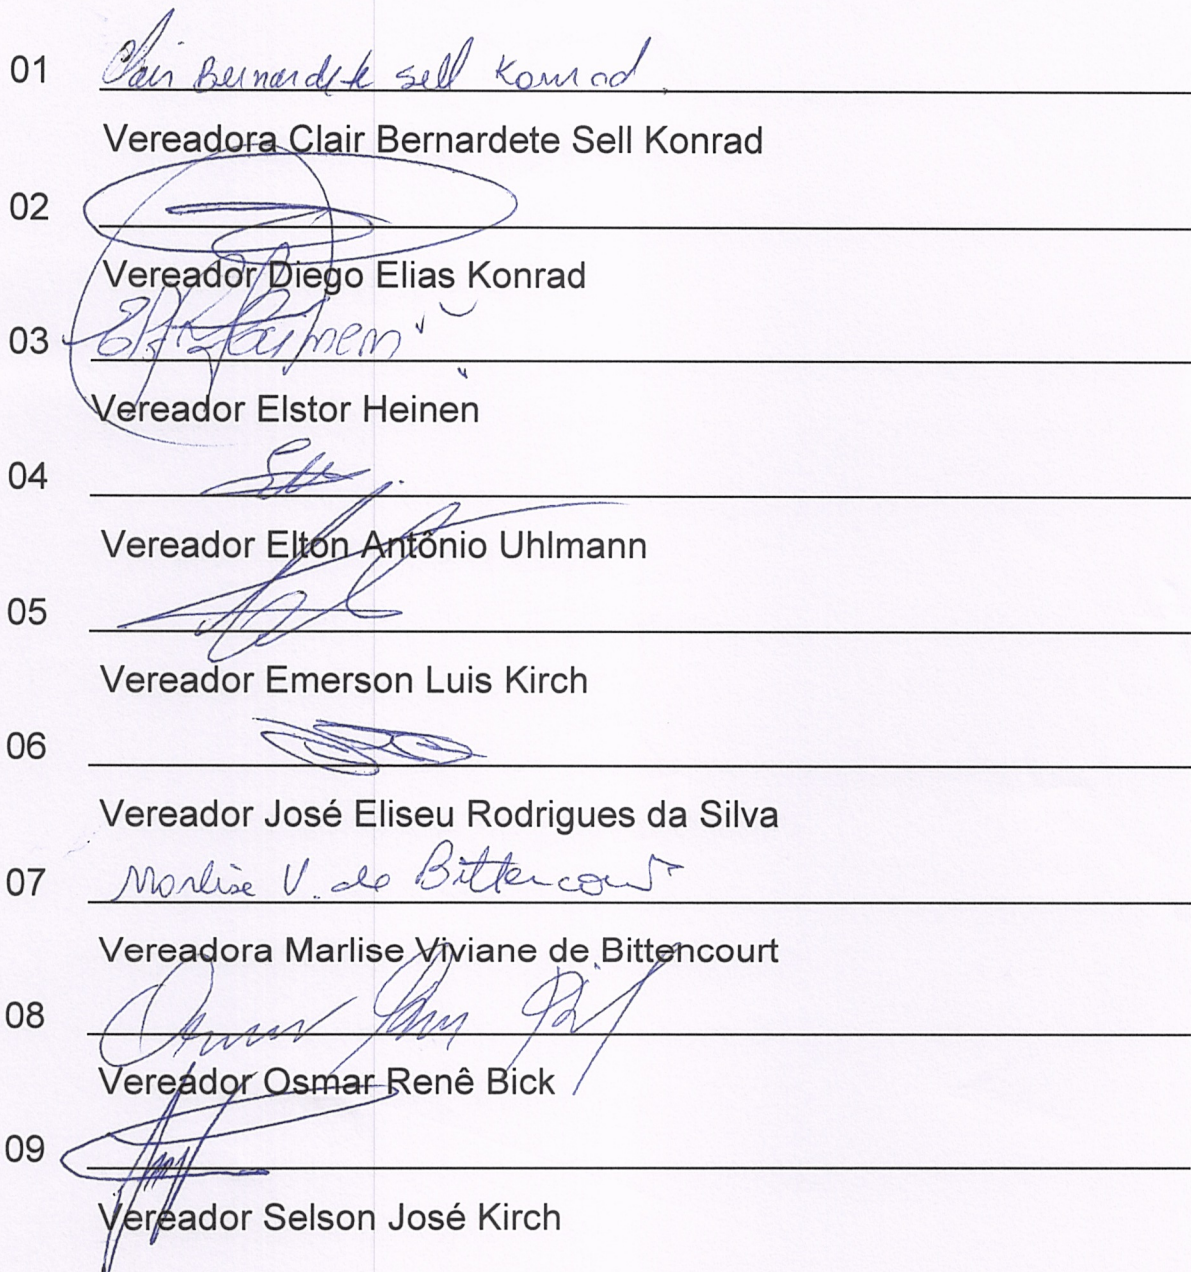 01 Clair Bernardete Sell Konrad
Vereadora Clair Bernardete Sell Konrad
02
Vereador Diego Elias Konrad
03 Heinen
Vereador Elstor Heinen
04
Vereador Elton Antônio Uhlmann
05
Vereador Emerson Luis Kirch
06
Vereador José Eliseu Rodrigues da Silva
07 Marlise V. de Bittencourt
Vereadora Marlise Viviane de Bittencourt
08 Osmar
Vereador Osmar Renê Bick
09
Vereador Selson José Kirch